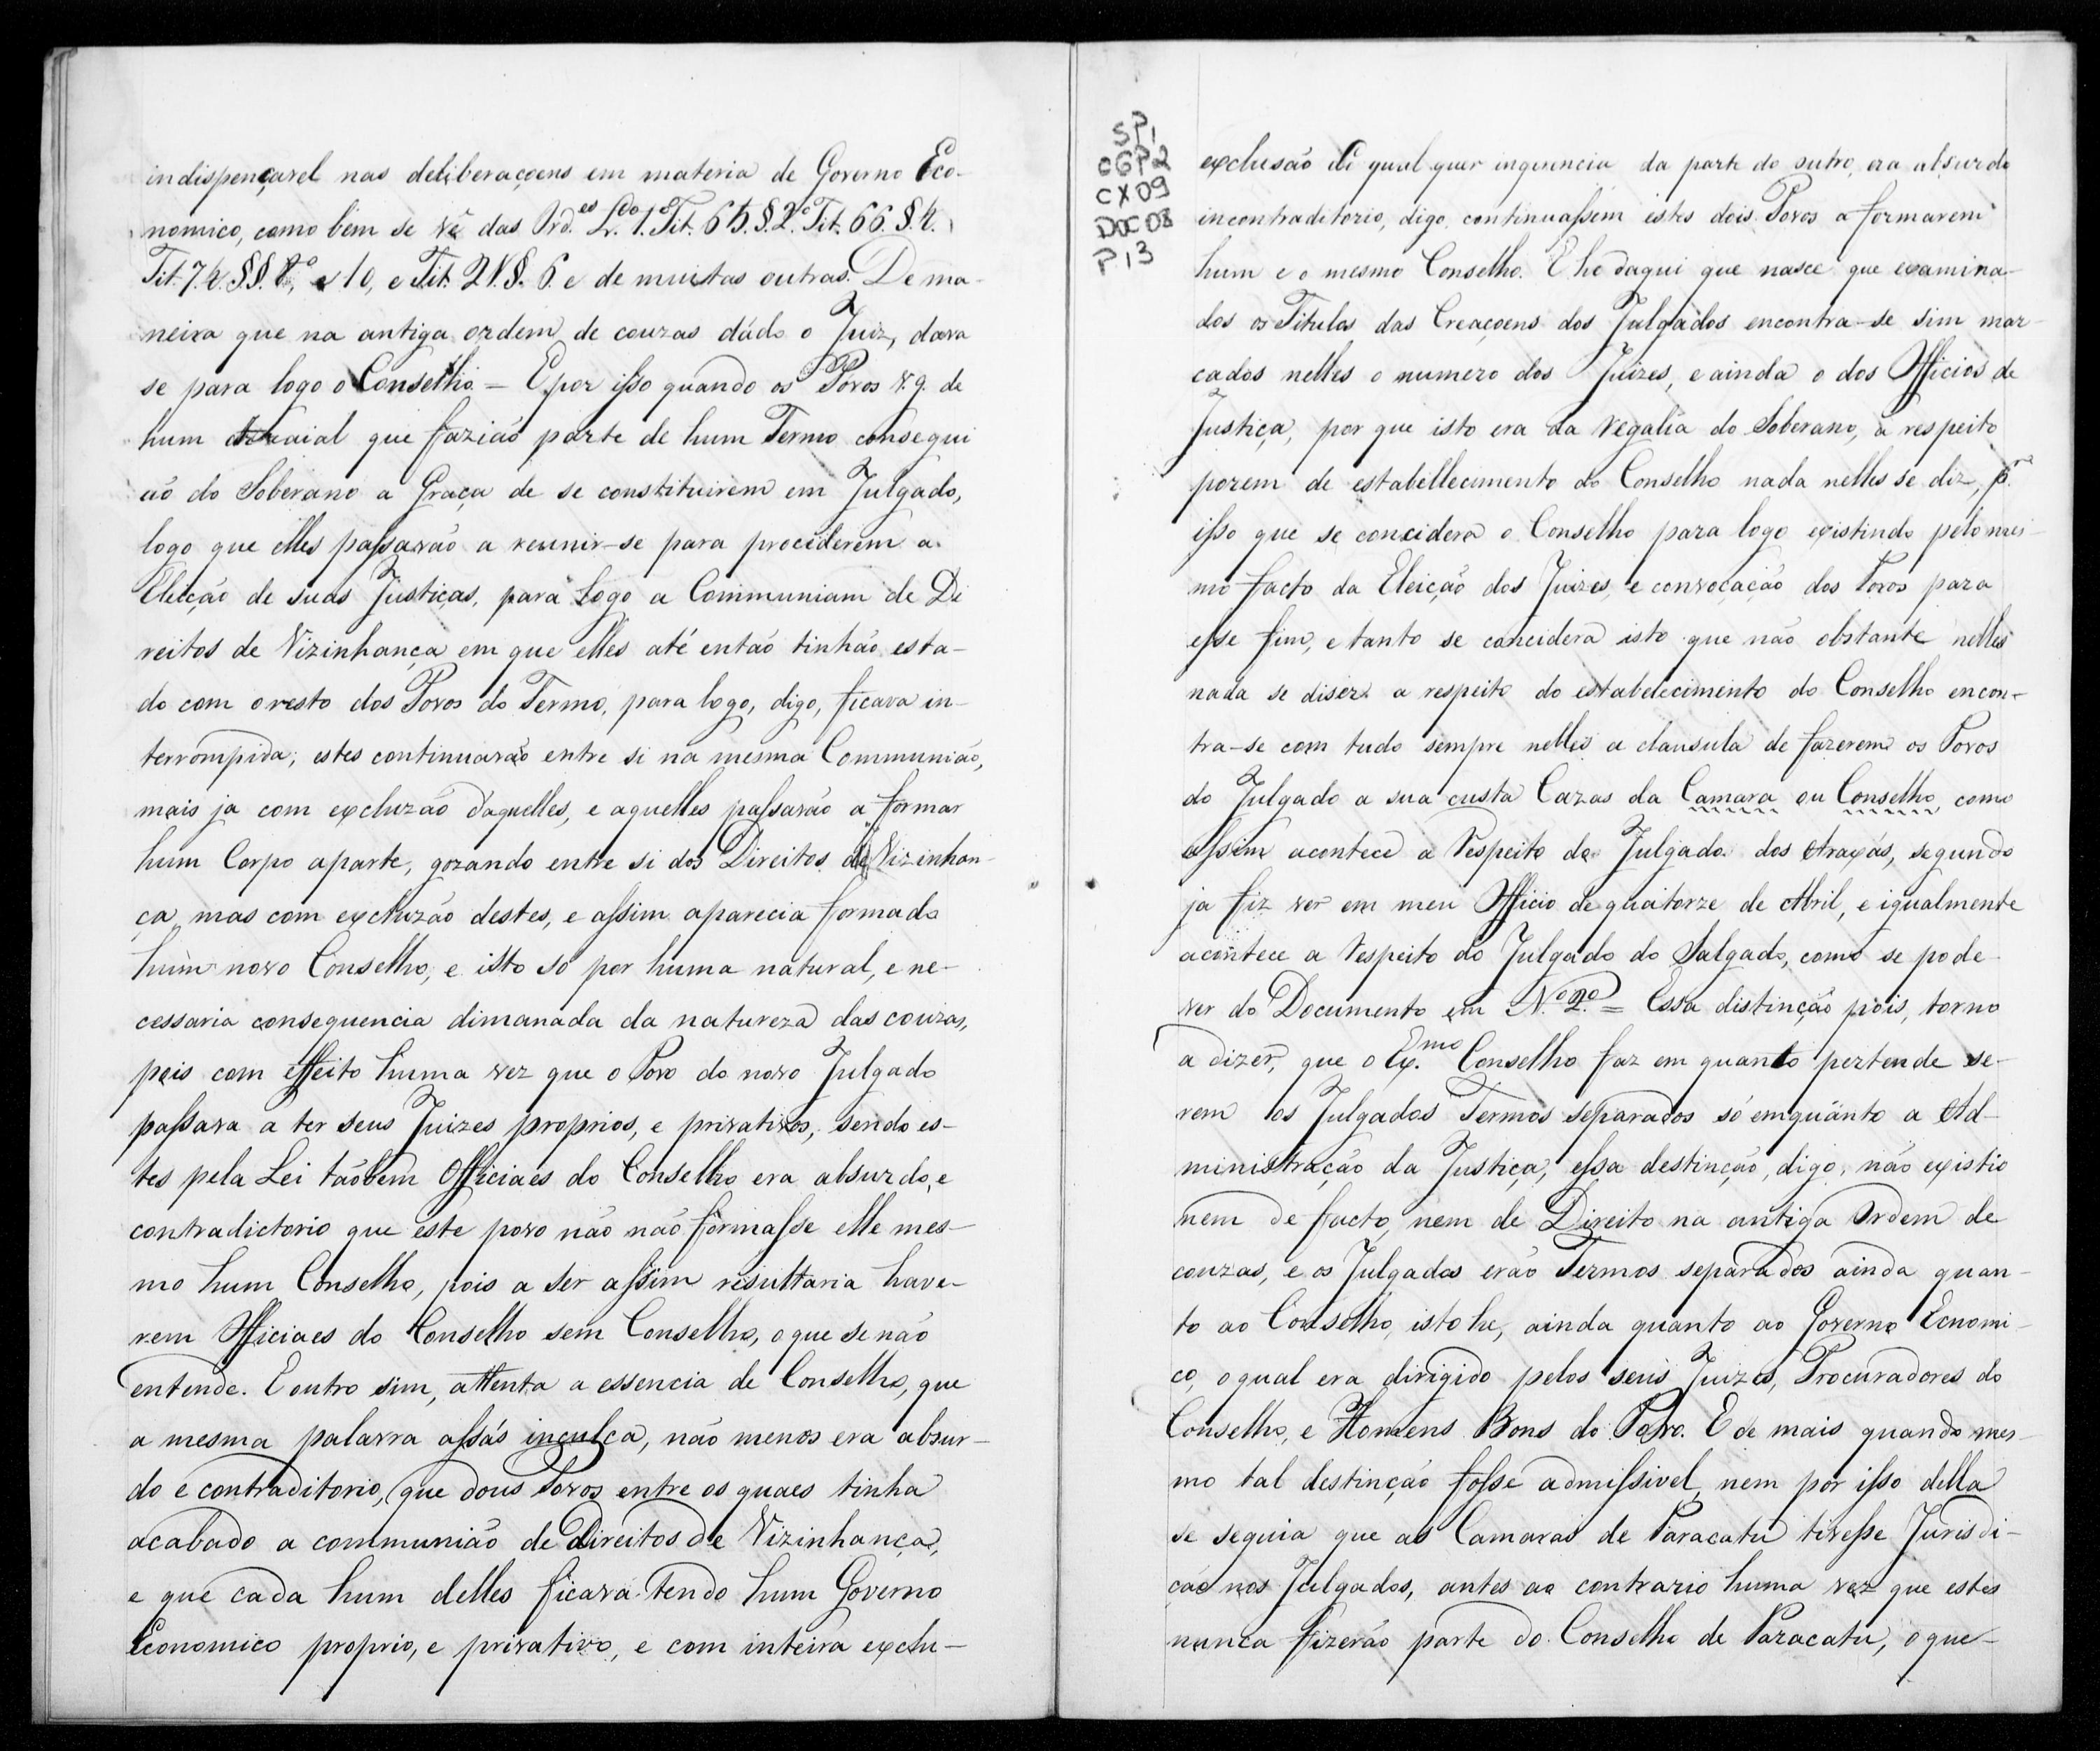 indispençavel nas deliberaçoens em materia de Governo Eco-
nomico, como bem se vê das Ord.es L.do 1.o Tit. 65. §. 2.o Tit. 66. §. 4.
Tit. 74. §§. 8.o, e 10, e Tit. 21 §. 6. e de muitas outras. De ma-
neira que na antiga ordem de couzas dádo o Juiz, dava
se para logo o Conselho. — E por isso quando os Povos v. g. de
hum Arraial que fazião parte de hum Termo consegui
ão do Soberano a Graça de se constituirem em Julgado,
logo que elles passavão a reunir-se para procederem a
Eleição de suas Justiças, para logo a Communiam de Di
reitos de Vizinhança em que elles até então tinhão esta-
do com o resto dos Povos do Termo, para logo, digo, ficava in-
terrompida; estes continuavão entre si na mesma Communião,
mais ja com excluzão d'aquelles, e aquelles passavão a formar
hum Corpo aparte, gozando entre si dos Direitos de Vizinhan-
ça, mas com excluzão destes, e assim aparecia formado
hum novo Conselho, e isto só por huma natural, e ne-
cessaria consequencia dimanada da natureza das couzas,
pois com effeito huma vez que o Povo do novo Julgado
passava a ter seus Juizes proprios, e privativos, sendo es-
tes pela Lei tãobem Officiaes do Conselho era absurdo, e
contradictorio que este povo não não formasse elle mes-
mo hum Conselho, pois a ser assim resultaria have-
rem Officiaes do Conselho sem Conselho, o que se não
entende. E outro sim, attenta a essencia de Conselho, que
a mesma palavra assás inculca, não menos era absur-
do e contraditorio, que dous Povos entre os quaes tinha
acabado a communião de Direitos de Vizinhança,
e que cada hum delles ficava tendo hum Governo
Economico proprio, e privativo, e com inteira exclu-
SP1
CGP2
CX09
DOC08
P13
exclusão de qual quer ingerencia da parte do outro, era absurdo
incontraditorio, digo, continuassem estes dois Povos a formarem
hum e o mesmo Conselho. E he daqui que nasce que examina-
dos os Titulos das Creaçoens dos Julgados encontra-se sim mar-
cados nelles o numero dos Juizes, e ainda o dos Officios de
Justiça, por que isto era da regalia do Soberano, a respeito
porem de estabellecimento do Conselho nada nelles se diz, p.r
isso que se concidera o Conselho para logo existindo pelo mes-
mo facto da Eleição dos Juizes, e convocação dos Povos para
esse fim, e tanto se concidera isto que não obstante nelles
nada se diser a respeito do estabelecimento do Conselho encon-
tra-se com tudo sempre nelles a clausula de fazerem os Povos
do Julgado a sua custa Cazas da Camara ou Conselho, como
assim acontece a respeito do Julgado dos Araxás, segundo
ja fiz ver em meu Officio de quatorze de Abril, e igualmente
acontece a respeito do Julgado do Salgado, como se pode
ver do Documento em N.o 2.o = Essa distinção pois, torno
a dizer, que o Ex.mo Conselho faz em quanto pertende se-
rem os Julgados Termos separados só emquanto a Ad-
ministração da Justiça, essa destinção, digo, não existio
nem de facto, nem de Direito na antiga Ordem de
couzas, e os Julgados erão Termos separados ainda quan-
to ao Conselho, isto he, ainda quanto ao Governo Ecnomi-
co, o qual era dirigido pelos seus Juizes, Procuradores do
Conselho, e Homens Bons do Povo. E de mais quando mes-
mo tal destinção fosse admissivel, nem por isso della
se seguia que as Camaras de Paracatu tivesse Jurisdi-
ção nos Julgados, antes ao contrario huma vez que estes
nunca fizerão parte do Conselho de Paracatu, o que-